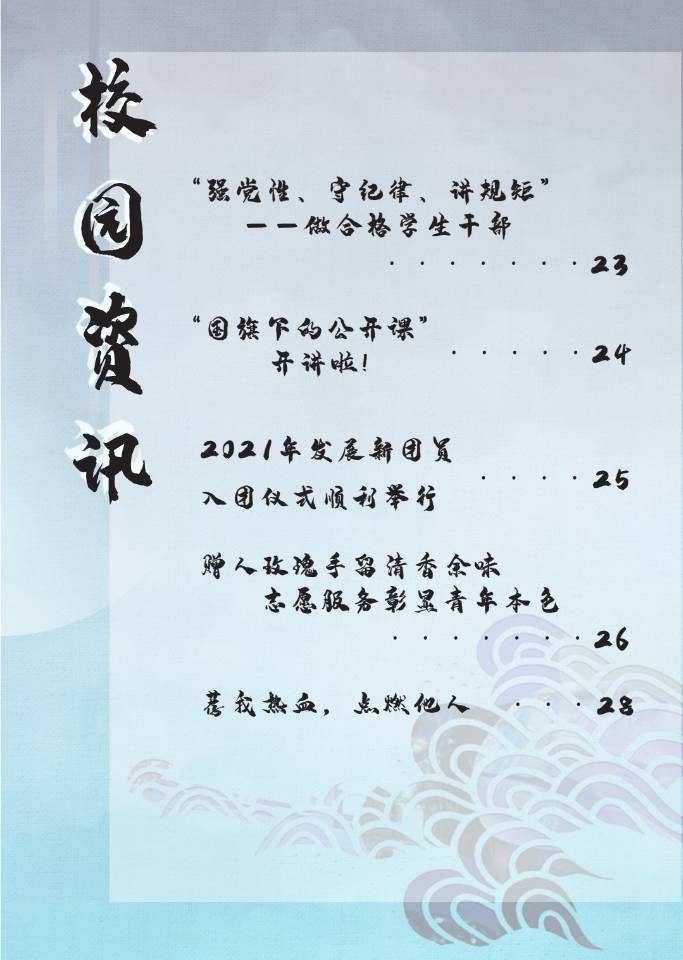 校园资讯
“强党性、守纪律、讲规矩”
——做合格学生干部
· · · · · · · 23
“国旗下的公开课”
开讲啦！
· · · · · 24
2021年发展新团员
入团仪式顺利举行
· · · · 25
赠人玫瑰手留清香余味
志愿服务彰显青年本色
· · · · · · · 26
荐我热血，点燃他人 · · · 28